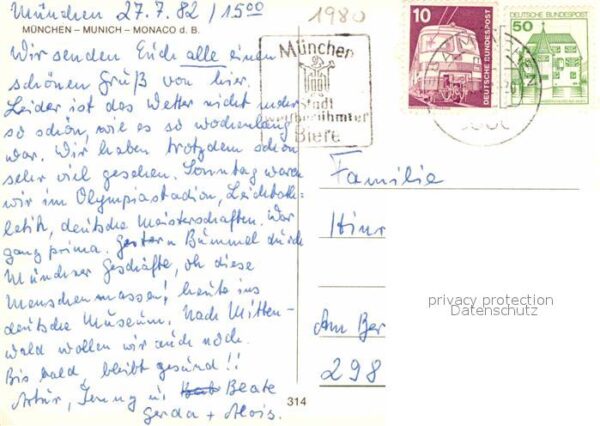 München 27.7.82 / 15⁰⁰
1980
MÜNCHEN – MUNICH – MONACO d. B.
Wir senden Euch alle einen
schönen Gruß von hier.
Leider ist das Wetter nicht mehr
so schön, wie es so wochenlang
war. Wir haben trotzdem schon
sehr viel gesehen. Sonntag waren
wir im Olympiastadion, Leichtath=
letik, deutsche Meisterschaften. War
ganz prima. Gestern Bummel durch
Münchner Geschäfte, oh diese
Menschenmassen! heute ins
deutsche Museum. Nach Mitten-
wald wollen wir auch noch.
Bis bald, bleibt gesund!!
Artur, Jenny u. Beate
Gerda + Alois.
München
Stadt
weltberühmter
Biere
10
DEUTSCHE BUNDESPOST
DEUTSCHE BUNDESPOST
50
Familie
Hinr
Am Ber
298
privacy protection
Datenschutz
314